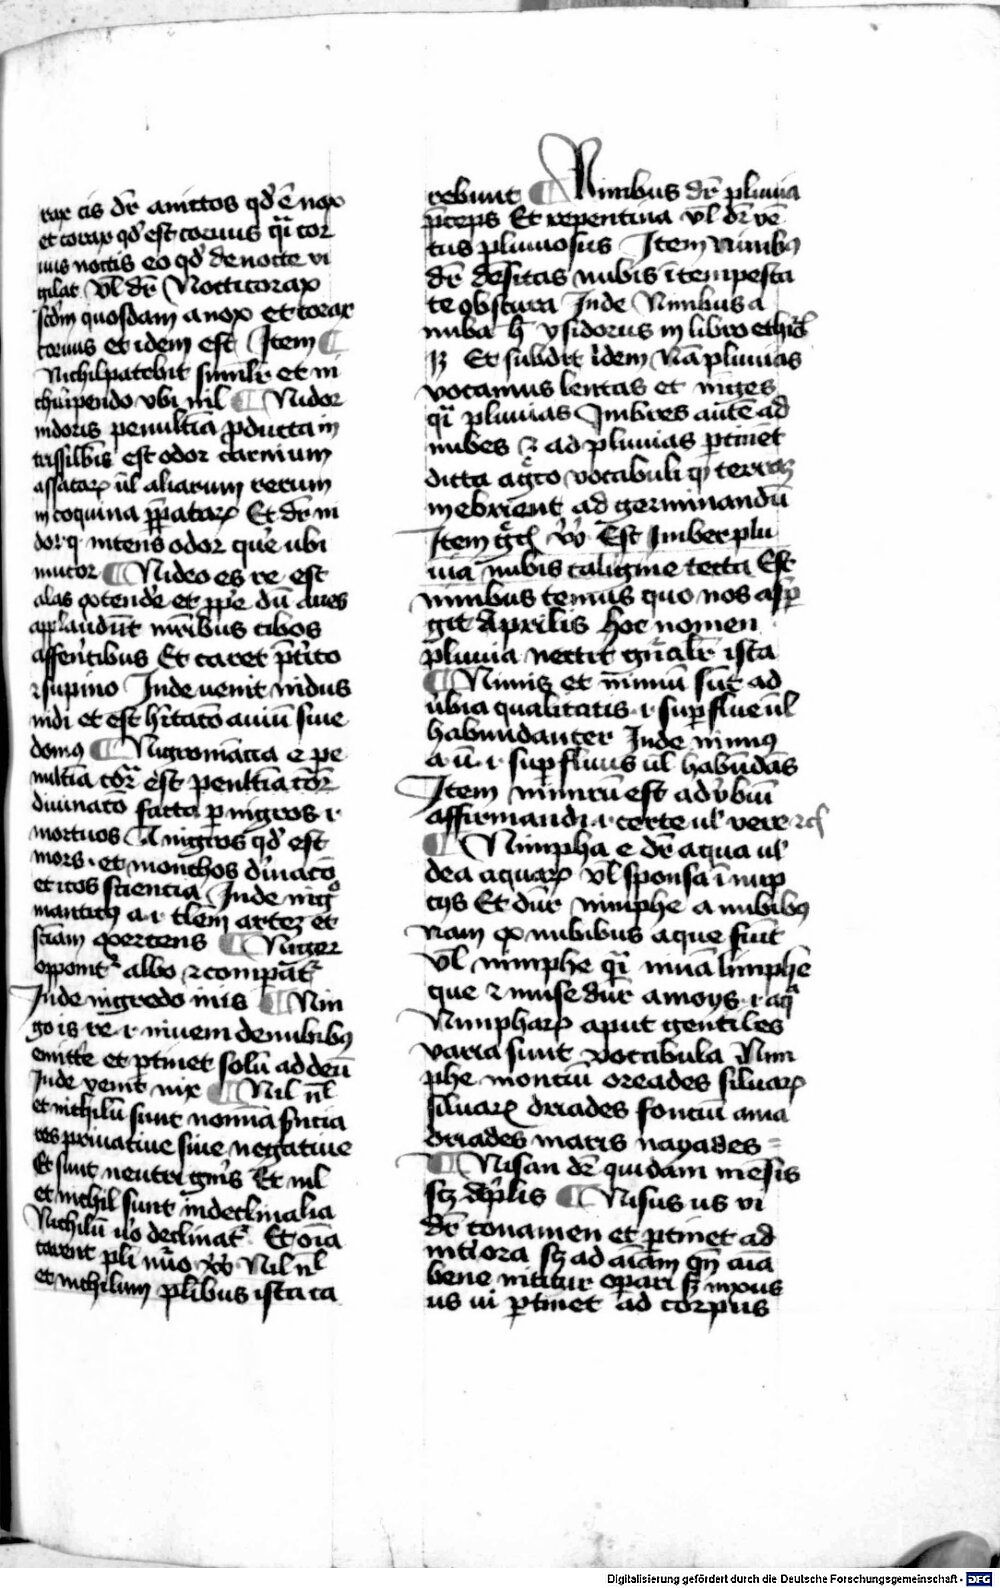 rax cis dr̄ amittos qd̓ ē nox
et corax qd̓ est coruus qͣi cor
uus noctis eo qd̓ de nocte vi
gilat Vl̄ dr̄ Nocticorax
scd̓m quosdam a nox et corax
coruus et idem est Item ¶
Nichilpatebit simil̓r et in
vbi nil ¶ Nidor
nidoris penultīa ꝓducta in
trissill̓bis est odor carnium
assatarꝝ ul̄ aliarum rerum
in coquina p̄patarꝝ Et dr̄ ni
dor q̓ intens odor que ubi
¶ Nideo es re est
alas et dū aues
applaudūt cibos
afferētibus Et caret p̄tito
⁊ supino Inde uenit nidus
nidi et est h̓itatō auiū siue
domꝯ ¶ Nigromācia e pe
nultīa cor̄ est penltīa cor̄
diuinatō facta ꝑ nigros .i.
mortuos A nigros qd̓ est
mors .et monchos diuinatō
sciencia Inde nigͦ
manticꝯ a .i. artez et
sciam ¶ Niger
opponitᷣ albo ⁊ compatᷣ
Inde nigredo inis ¶ Nin
go is re .i. niuem de nubibꝯ
emitte et ꝑtinet solū ad deū
Inde venit nix ¶ Nil nl̄
et nichilū sunt nomīa
priuatiue siue negatiue
Et sunt neutri gn̄is Et nil
et nichil sunt indeclinalia
Nichilū u̓o declinatᷣ Et oīa
carent pli nūo Nil nl̄
et nichilum plībus ista ca
rebunt ¶ Nimbus dr̄ pluuia
p̄ceps Et repentina vl̄ dr̄ vē
tus pluuiosus Item nimbꝯ
dr̄ dēsitas nubis ī tempesta
te obscura Inde Nimbus a
nuba h̄ ysidorus in libro ethi
Et subdit ibdem Nā pluuias
vocamus lentas et iuges
qͣi pluuias Imbres autē ad
nubes ⁊ ad pluuias ꝑtinēt
dicta vocabuli qͣ terraꝫ
inebrient ad germinandū
Item Est Imber plu
uia nubis caligine tecta Est
nimbus tenuis quo nos asꝑ
git Aprilis hoc nomen
pluuia nectit gn̄alr̄ ista
¶ Nimis et nimiū sūt ad
ūbia qualitatis .i. suꝑflue ul̄
habundanter Inde nimiꝯ
a ū .i. suꝑfluus ul̄ habūdās
Item nimirū est adūbiū
affirmandi .i. certe ul̓ vere
¶ Nimpha e dr̄ aqua ul̓
dea aquarꝝ Vl̄ sponsa ī nup
cijs Et dūr nimphe a nubibꝯ
nam nubibus aque fiūt
Vl̄ nimphe qͣi limphe
que ⁊ muse dūr a moys .i. aqͣ
Nimpharꝝ aput gentiles
varia sunt vocabula Nim
phe montiū oreades siluarꝝ
siluarꝝ driades fontiū ama
driades maris nayades
¶ Nisan dr̄ quidam mēsis
scꝫ Ap̄lis ¶ Nisus us vi
dr̄ conamen et ꝑtinet ad
scꝫ ad aīam
bene nititur opari sꝫ nixus
us ui ꝑtinet ad corpus
Digitalisierung gefördert durch die Deutsche Forschungsgemeinschaft - DFG